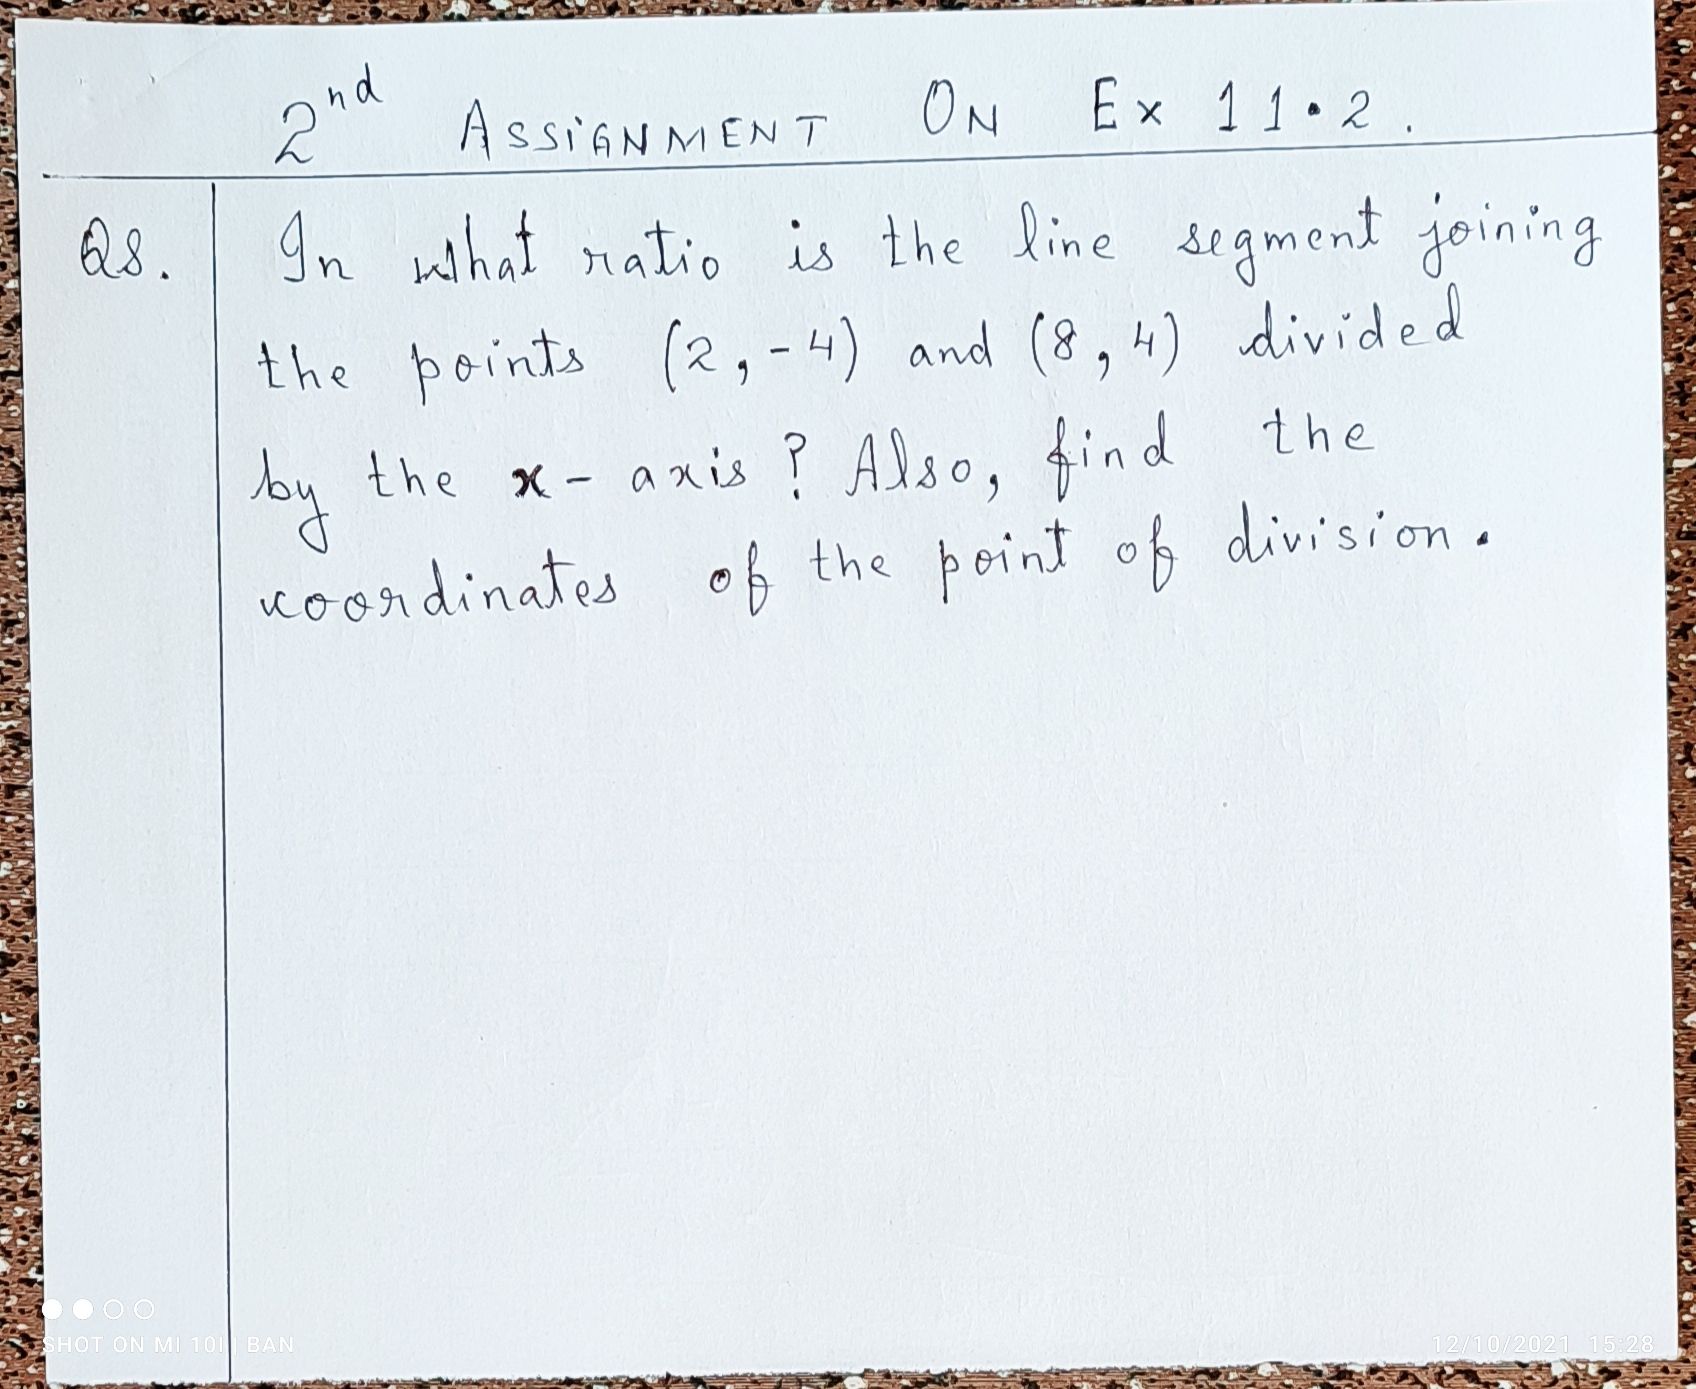 2nd ASSIGNMENT ON EX 11.2.
Q8. In what ratio is the line segment joining
the points (2, -4) and (8, 4) divided
by the x-axis? Also, find the
coordinates of the point of division.
SHOT ON MI 10I | BAN
12/10/2021 15:28